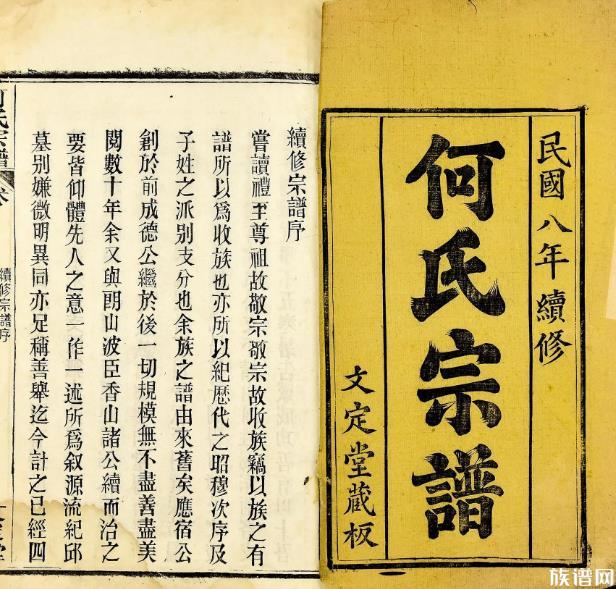 民國八年續修
何氏宗譜
文定堂藏板
續修宗譜序
嘗讀禮至尊祖故敬宗敬宗故收族竊以族之有
譜所以爲收族也亦所以紀歷代之昭穆次序及
子姓之派別支分也余族之譜由來舊矣應宿公
創於前成德公繼於後一切規模無不盡善盡美
閱數十年余又與朗山波臣香山諸公續而治之
要皆仰體先人之意一作一述所爲叙源流紀邱
墓别嫌微明異同亦足稱善舉迄今計之已經四
氏宗譜
續修宗譜序
族谱网